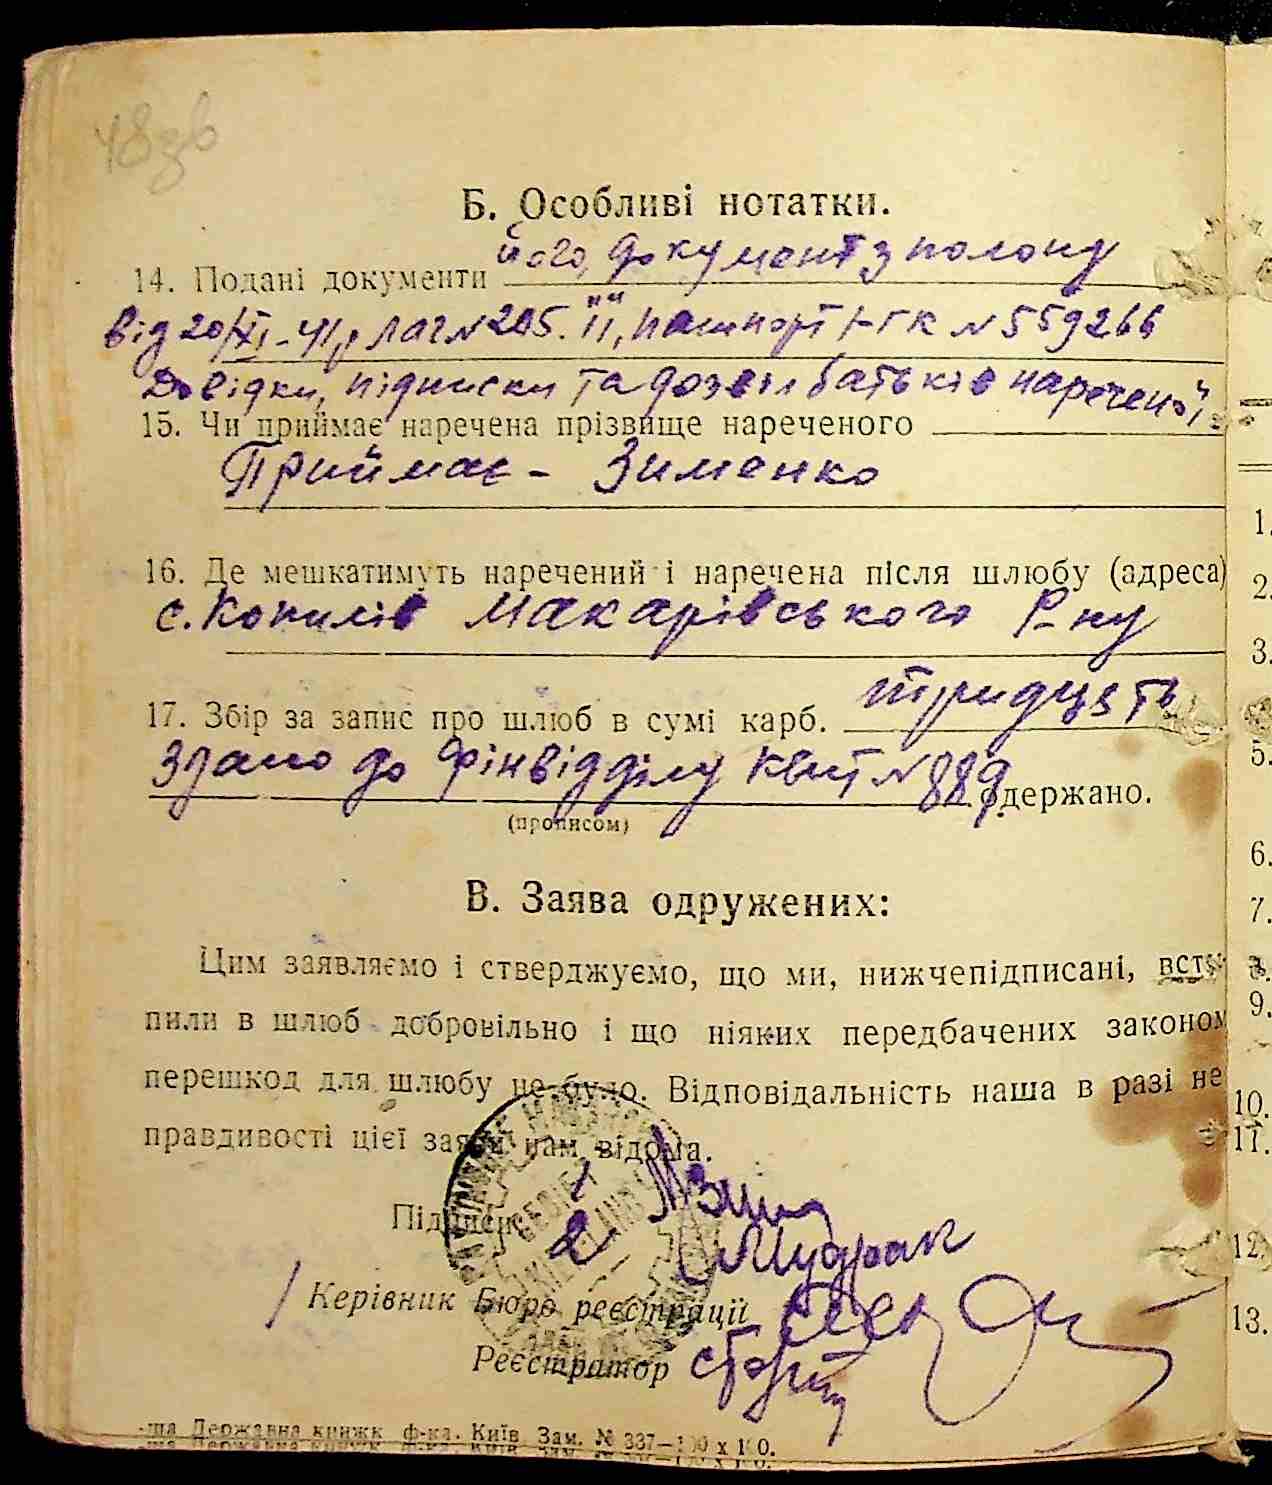 48зв
Б. Особливі нотатки.
його, документ з полону
14. Подані документи
від 20/XI-41р Лаг № 205. "II", пашпорт І-ГК № 559266
Довідки, підписки та дозвіл батьків нареченої
15. Чи приймає наречена прізвище нареченого
Приймає - Зименко
16. Де мешкатимуть наречений і наречена після шлюбу (адреса)
с. Копилів Макарівського Р-ну
17. Збір за запис про шлюб в сумі карб. тридцять
Здано до Фінвідділу квит № 889 одержано.
(прописом)
В. Заява одружених:
Цим заявляємо і стверджуємо, що ми, нижчепідписані, всту-
пили в шлюб добровільно і що ніяких передбачених законом
перешкод для шлюбу не було. Відповідальність наша в разі не
правдивості цієї заяви нам відома.
Підписи 1
2 Мудрак
Керівник Бюро реєстрації
Реєстратор
Державна книжк ф-ка. Київ Зам. № 337—100 х 100.
1.
2.
3.
5.
6.
7.
9.
10.
11.
12.
13.